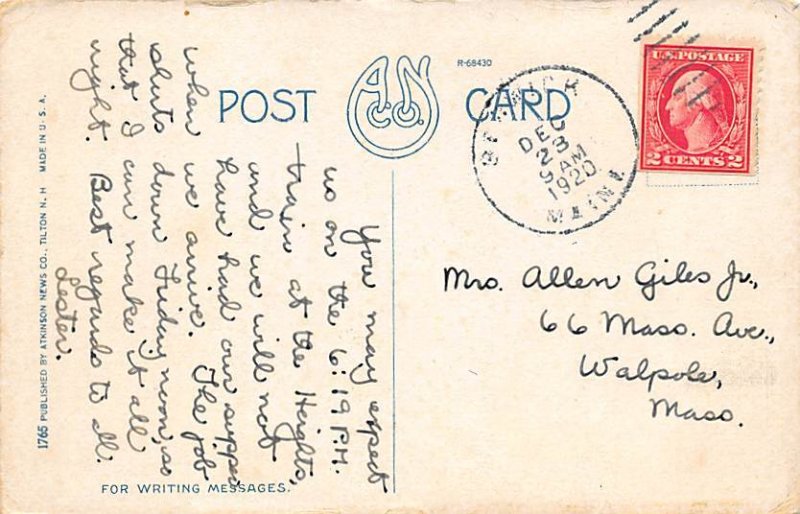 POST CARD
A.N.Co.
R-68430
BERWICK
DEC
23
9 AM
1920
MAINE
U.S. POSTAGE
2 CENTS 2
Mrs. Allen Giles Jr.,
66 Mass. Ave.,
Walpole,
Mass.
You may expect
us on the 6:19 P.M.
train at the Heights,
and we will not
have had our supper
when we arrive. The job
shuts down Friday noon, so
that I can make it all
right. Best regards to all.
Lester.
FOR WRITING MESSAGES.
1765 PUBLISHED BY ATKINSON NEWS CO., TILTON N. H MADE IN U.S.A.